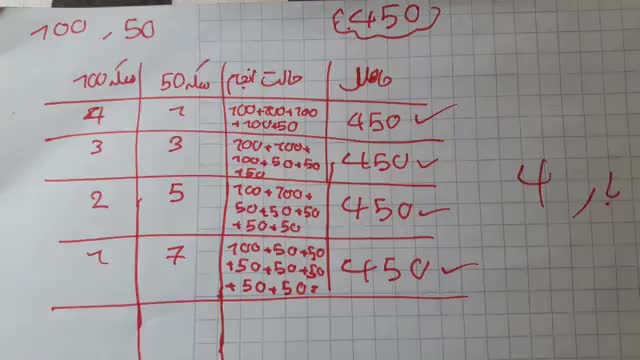 100 , 50
450
سکه 100
سکه 50
حالت انجام
حاصل
4
1
100+100+100
+100+50
450 ✓
3
3
100+100+
100+50+50
450 ✓
2
5
100+100+
50+50+50
+50+50
450 ✓
1
7
100+50+50
+50+50+50
+50+50=
450 ✓
4 بار